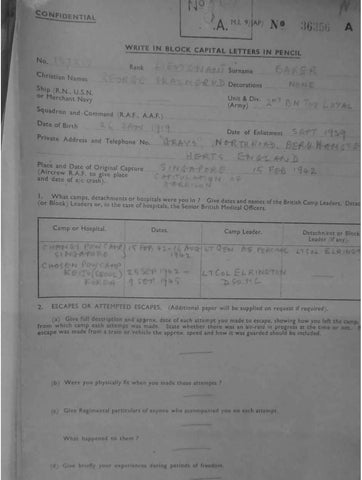 CONFIDENTIAL
A. M.I. 9/JAP) No 36356 A
WRITE IN BLOCK CAPITAL LETTERS IN PENCIL
No. Rank LIEUTENANT Surname BAKER
Christian Names GEORGE Decorations NONE
Ship (R.N., U.S.N. or Merchant Navy
Unit & Div. (Army) 2ND BN THE LOYAL
Squadron and Command (R.A.F., A.A.F.)
Date of Birth 26 JAN 1919 Date of Enlistment SEPT 1939
Private Address and Telephone No. "GRAYS" NORTH ROAD, BERKHAMSTE
HERTS ENGLAND
Place and Date of Original Capture SINGAPORE 15 FEB 1942
(Aircrew R.A.F. to give place and date of a/c crash). CAPITULATION OF
GARRISON
1. What camps, detachments or hospitals were you in? Give dates and names of the British Camp Leaders, Detac
(or Block) Leaders or, in the case of hospitals, the Senior British Medical Officers.
Camp or Hospital. Dates. Camp Leader. Detachment or Block Leader (if any).
CHANGI POW CAMP 15 FEB 42-16 AUG LT GEN AE PERCIVAL LT COL ELRINGT
SINGAPORE 1942
CHOSEN POW CAMP 25 SEP 1942 - LT COL ELRINGTON
KEIJO (SEOUL) 9 SEP 1945 DSO. MC
KOREA
2. ESCAPES OR ATTEMPTED ESCAPES. (Additional paper will be supplied on request if required).
(a) Give full description and approx. date of each attempt you made to escape, showing how you left the camp,
from which camp each attempt was made. State whether there was an air-raid in progress at the time or not. If
escape was made from a train or vehicle the approx. speed and how it was guarded should be included.
(b) Were you physically fit when you made these attempts?
(c) Give Regimental particulars of anyone who accompanied you on each attempt.
What happened to them?
(d) Give briefly your experiences during periods of freedom.